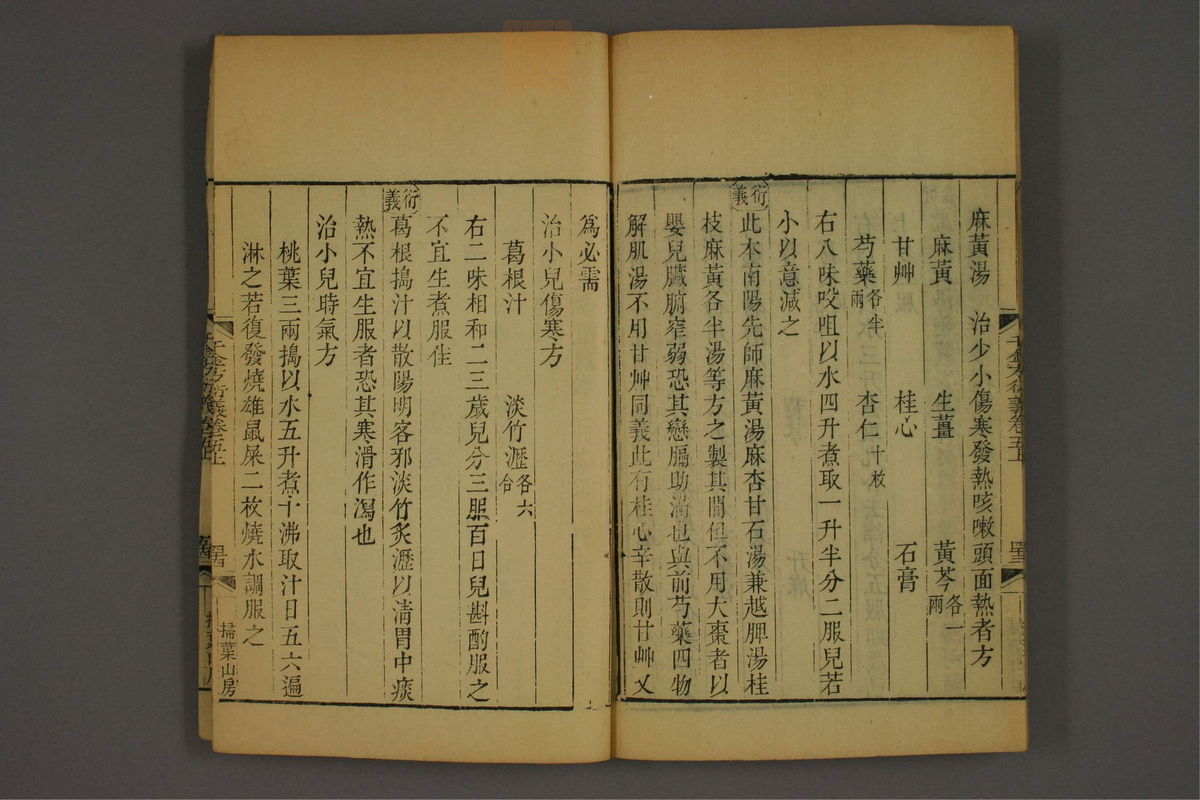 麻黃湯　治少小傷寒發熱咳嗽頭面熱者方
麻黃　生薑　黃芩各一兩
甘艸　桂心　石膏
芍藥各半兩　杏仁十枚
右八味㕮咀以水四升煮取一升半分二服兒若
小以意減之
衍義
此本南陽先師麻黃湯麻杏甘石湯兼越脾湯桂
枝麻黃各半湯等方之製其間但不用大棗者以
嬰兒臟腑窄弱恐其戀膈助滿也與前芍藥四物
解肌湯不用甘艸同義此有桂心辛散則甘艸又
爲必需
治小兒傷寒方
葛根汁　淡竹瀝各六合
右二味相和二三歲兒分三服百日兒斟酌服之
不宜生煮服佳
衍義
葛根搗汁以散陽明客邪淡竹炙瀝以清胃中痰
熱不宜生服者恐其寒滑作瀉也
治小兒時氣方
桃葉三兩搗以水五升煮十沸取汁日五六遍
淋之若復發燒雄鼠屎二枚燒水調服之
千金方衍義卷五上
掃葉山房